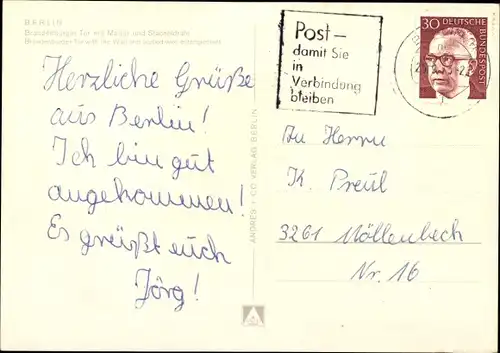 BERLIN
Brandenburger Tor mit Mauer und Stacheldraht
Brandenburger Tor with the Wall and
Herzliche Grüße
aus Berlin!
Ich bin gut
angekommen!
Es grüßt euch
Jörg!
ANDRES + CO VERLAG BERLIN
Post—
damit Sie
in
Verbindung
bleiben
30 DEUTSCHE
BUNDESPOST
An Herrn
K. Preul
3261 Möllenbeck
Nr. 16